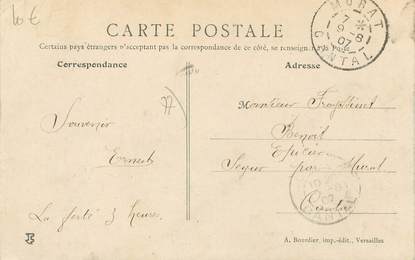 10 €
CARTE POSTALE
Certains pays étrangers n'acceptant pas la correspondance de ce côté, se renseigner à la Poste
Correspondance
Adresse
MURAT
7
9-8
07
CANTAL
Monsieur
Benoit
Epicier
Segur par Murat
Cantal
Souvenir
Ernest
La ferté 3 heures.
CANTAL
A. Bourdier, imp.-édit., Versailles